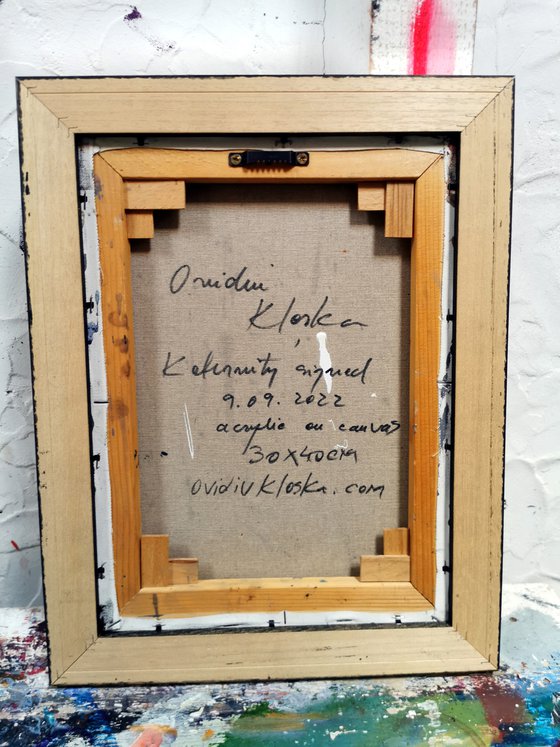 Ovidiu
Kloska
Keternity signed
9.09.2022
acrylic on canvas
30x40cm
ovidiukloska.com